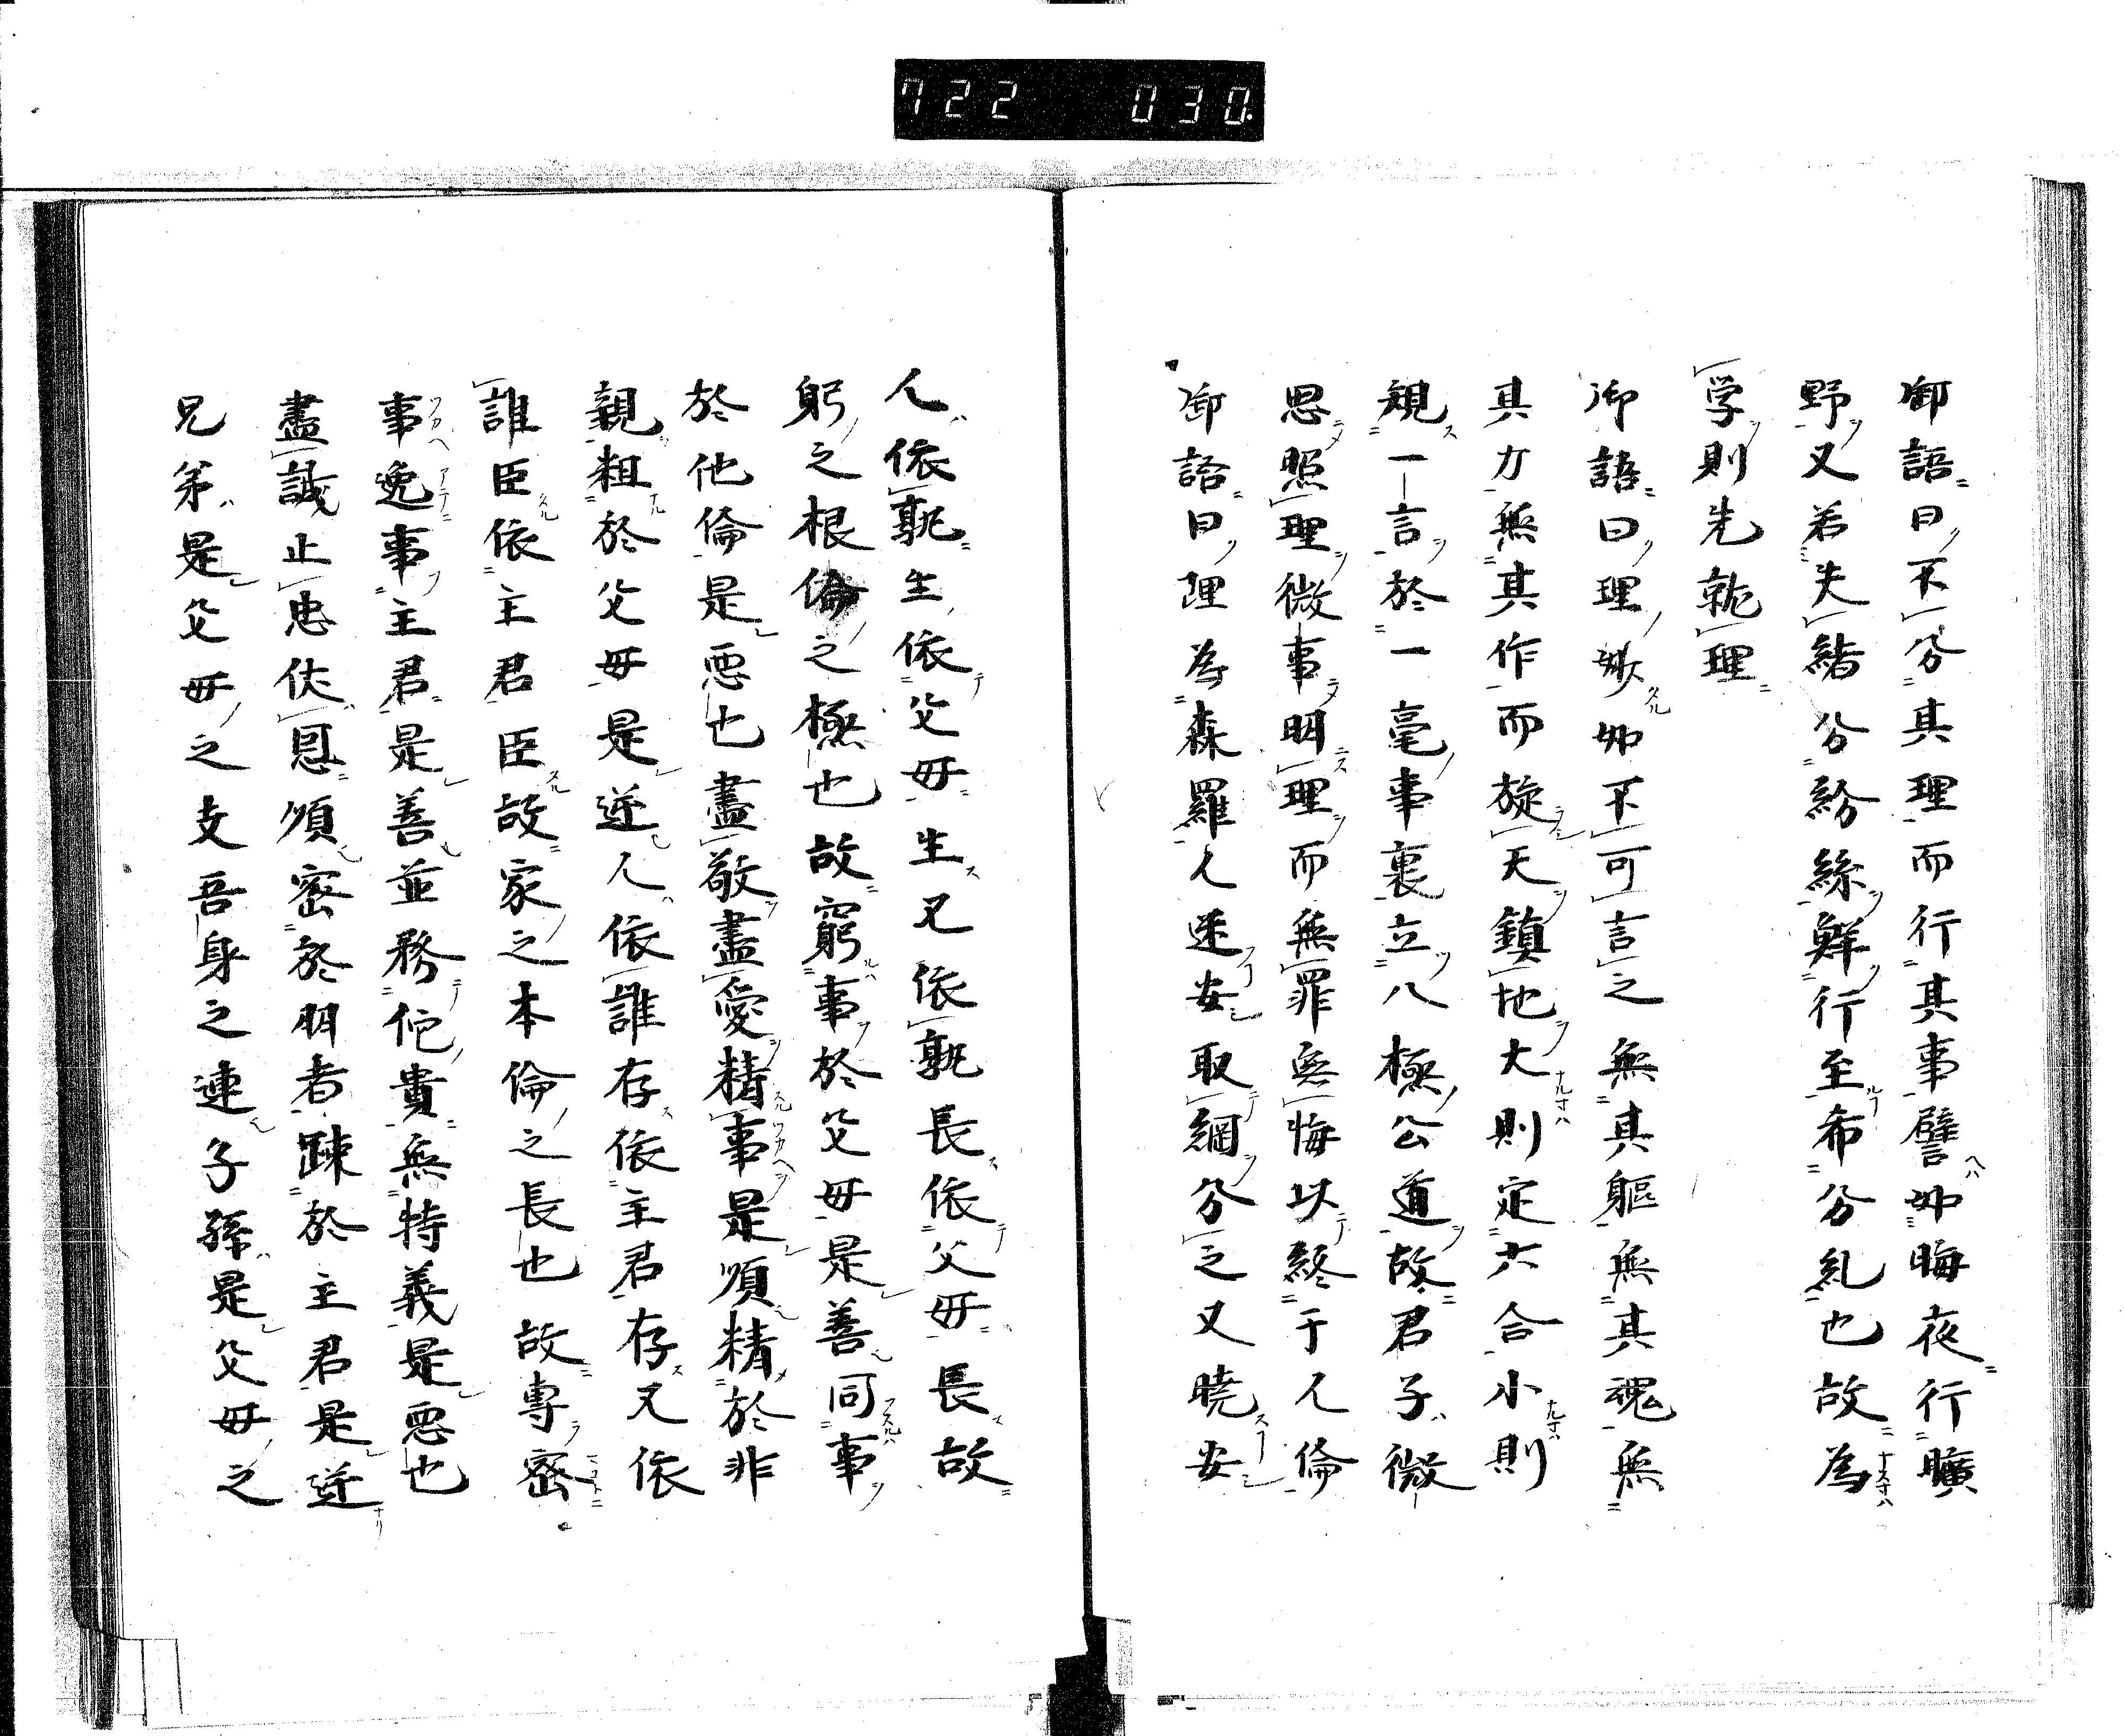 722 030.
御語曰不分其理而行其事譬如晦夜行曠
野又若失緒分紛絲鮮行至希分乱也故為
学則先執理
御語曰理妙如不可言之無其軀無其魂無
其力無其作而旋天鎮地大則定六合小則
規一言於一毫事裏立八極公道故君子微
思照理微事明理而無罪無悔以終于人倫
御語曰理為森羅人迷安取綱分之又曉安
人依孰生依父母生又依孰長依父母長故
躬之根倫之極也故窮事於父母是善同事
於他倫是悪也盡敬盡愛精事是順精於非
親粗於父母是逆人依誰存依主君存又依
誰臣依主君臣故家之本倫之長也故專密
事逸事主君是善並務他貴無特義是悪也
盡誠止忠伏恩順密於朋者踈於主君是逆
兄弟是父母之支吾身之連子孫是父母之